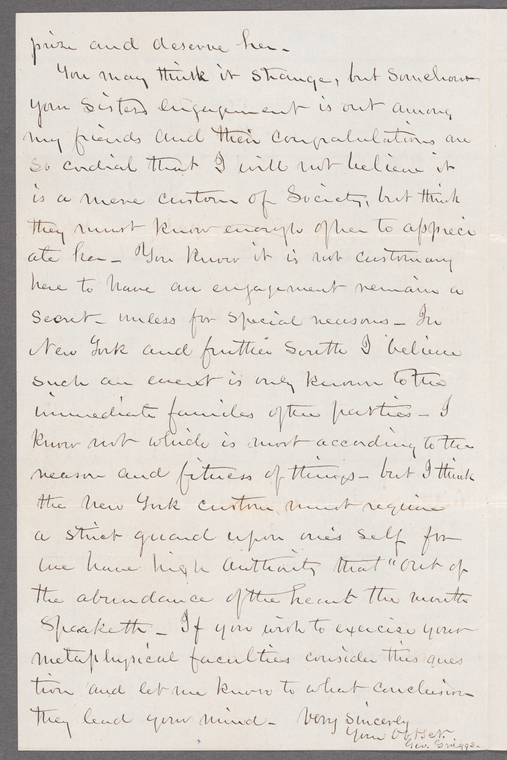 prize and deserve her -
You may think it strange, but somehow
your Sisters engagement is out among
my friends and their congratulations are
so cordial that I will not believe it
is a mere custom of Society, but think
they must know enough of her to appreci
ate her - You know it is not customary
here to have an engagement remain a
secret - unless for special reasons - In
New York and further South I believe
such an event is only known to the
immediate families of the parties - I
know not which is most according to the
reason and fitness of things - but I think
the New York custom must require
a strict guard upon one's self for
we have high authority that "out of
the abundance of the heart the mouth
speaketh - If you wish to exercise your
metaphysical faculties consider this ques
tion and let me know to what conclusion
they lead your mind - Very Sincerely
Your Obt Sert.
Geo. Griggs -